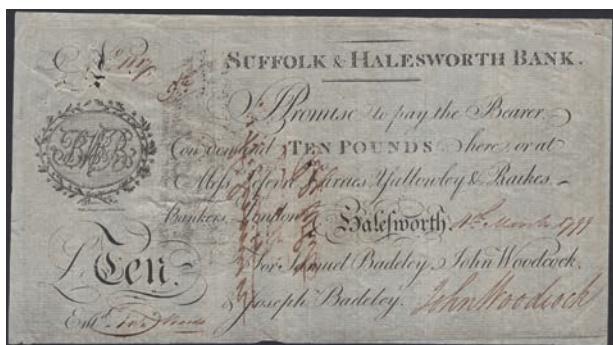 No
SUFFOLK & HALESWORTH BANK.
I Promise to pay the Bearer
on demand TEN POUNDS here, or at
Messrs Lefevre, Curries, Yallowley & Raikes.
Bankers, London
Halesworth March 1799
£ Ten.
For Samuel Badeley, John Woodcock,
& Joseph Badeley.
John Woodcock
Entd